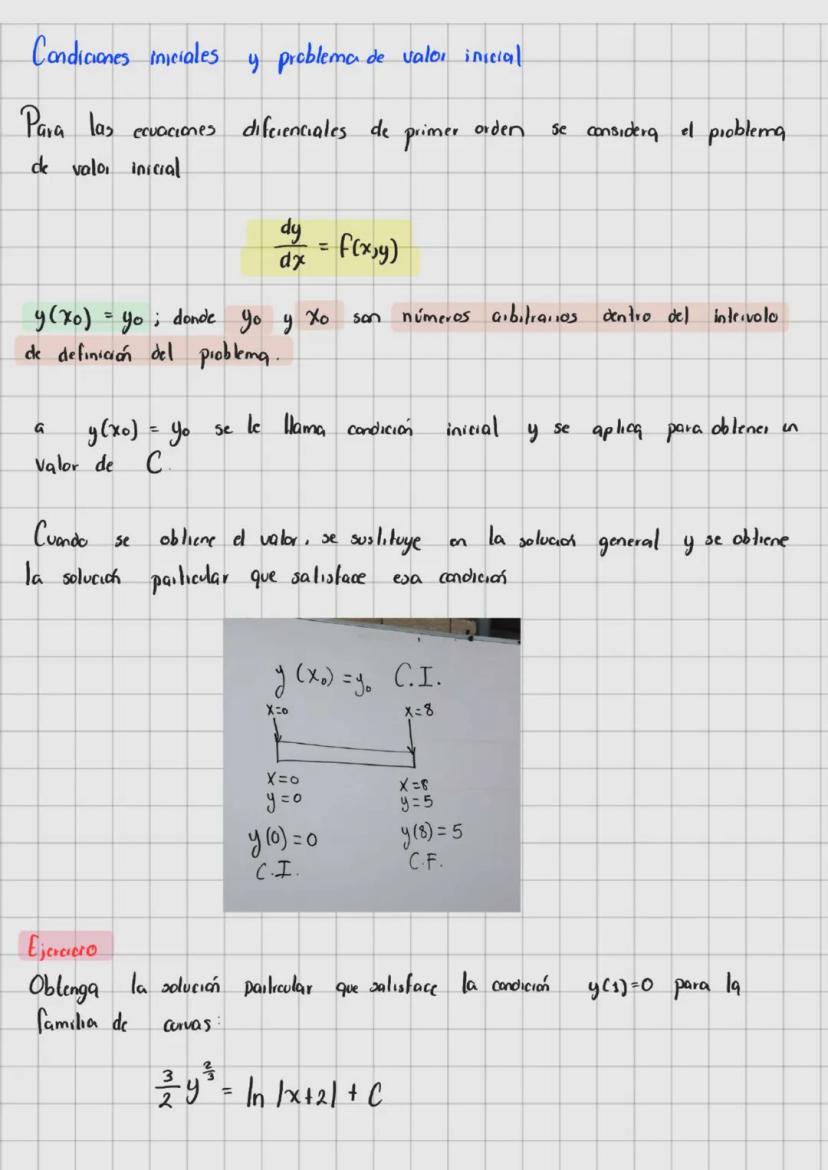 Condiciones iniciales y problema de valor inicial
Para las ecuaciones diferenciales de primer orden se considera el problema
de valor inicial
dy/dx = f(x,y)
y(x₀) = y₀ ; donde y₀ y x₀ son números arbitrarios dentro del intervalo
de definición del problema.
a y(x₀) = y₀ se le llama condición inicial y se aplica para obtener un
valor de C.
Cuando se obtiene el valor, se sustituye en la solución general y se obtiene
la solución particular que satisface esa condición
y(x₀) = y₀ C.I.
x=0 x=8
x=0 x=8
y=0 y=5
y(0)=0 y(8)=5
C.I. C.F.
Ejercicio
Obtenga la solución particular que satisface la condición y(1)=0 para la
familia de curvas:
3/2 y^(2/3) = ln |x+2| + C